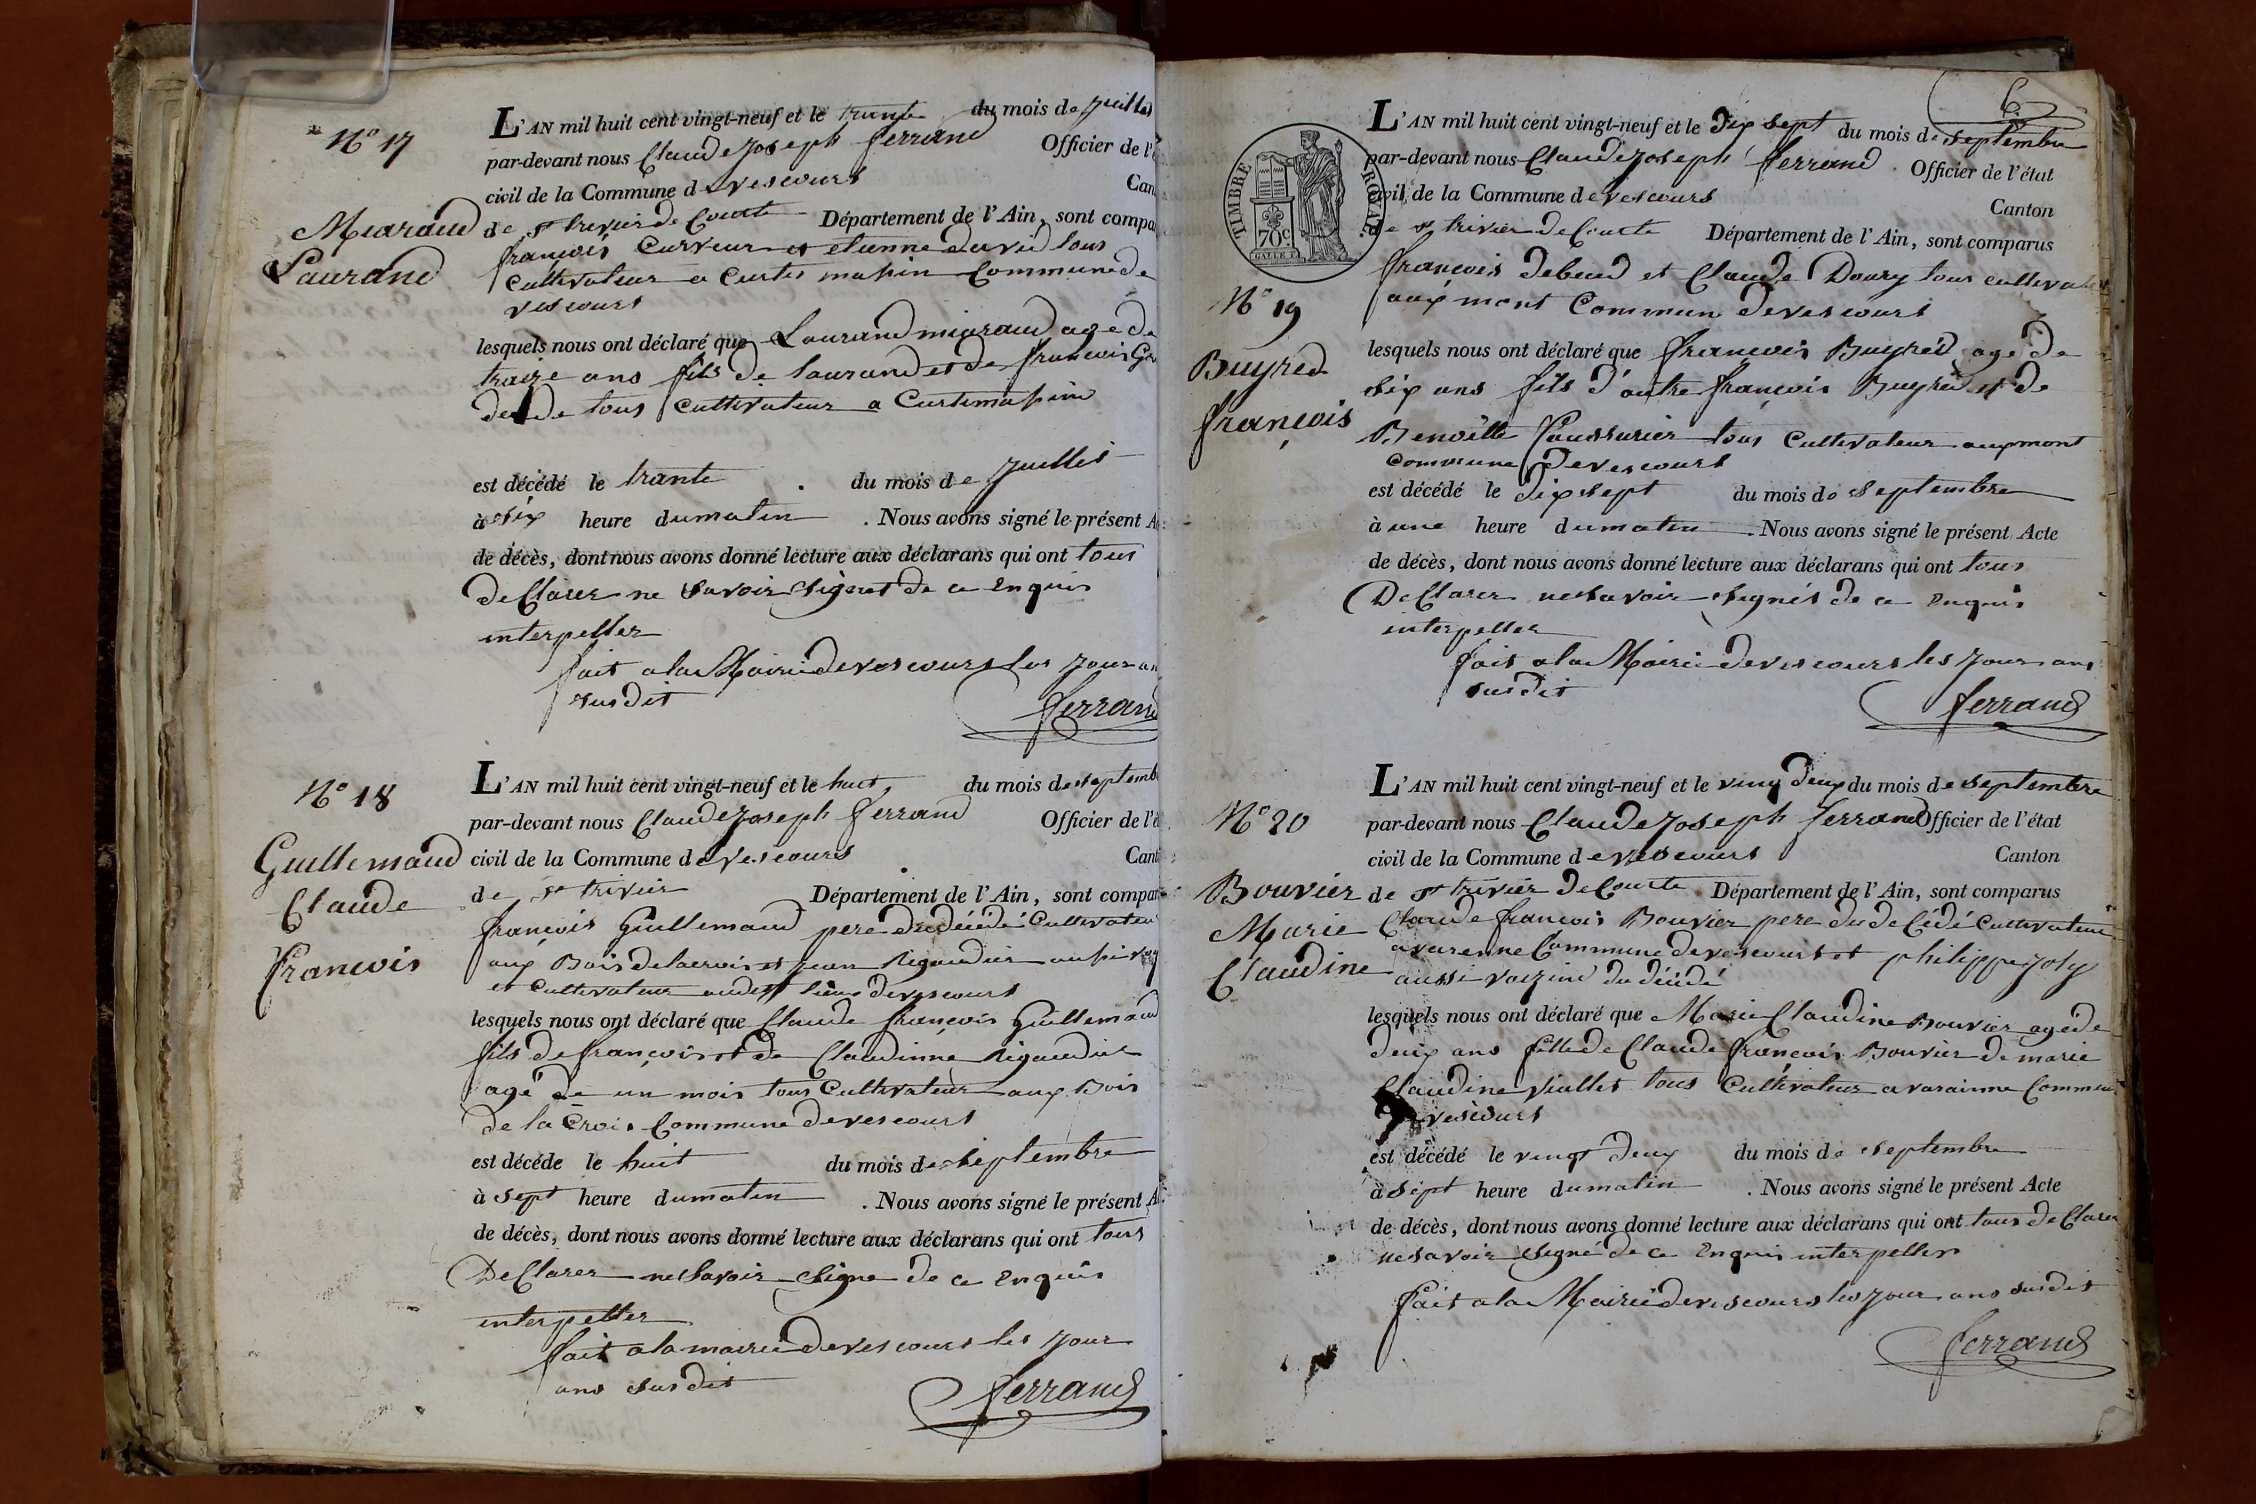 N° 17
Miaraud
Laurand
L'AN mil huit cent vingt-neuf et le trante du mois de juillet
par-devant nous Claude joseph ferrand Officier de l'é
civil de la Commune de vescours Can
de st trivier de Courte Département de l'Ain, sont compa
françois Curveur et etienne david tous
Cultivateur a Curtes maxin Commune de
vescours
lesquels nous ont déclaré que Laurand miaraud age de
traize ans fils de laurand et de francois
tous Cultivateur a Curtimaxin
est décédé le trante du mois de juillet
à Six heure du matin . Nous avons signé le présent A
de décès, dont nous avons donné lecture aux déclarans qui ont tous
de Clarer ne Savoir Signer de ce enquis
interpeller
fait a la Mairie de vescours les jour an
susdit
ferrand
N° 18
Guillemaud
Claude
francois
L'AN mil huit cent vingt-neuf et le huit du mois de septemb
par-devant nous Claude joseph ferrand Officier de l'é
civil de la Commune de vescours Cant
de st trivier Département de l'Ain, sont compar
françois Guillemaud pere du décédé Cultivateu
aux Bois de lacroix et jean Rigaudier
et Cultivateur audest lieux de vescours
lesquels nous ont déclaré que Claude françois Guillemaud
fils de françois et de Claudinne Rigaudier
agé de un mois tous Cultivateur aux Bois
de la Croix Commune de vescours
est décéde le huit du mois de septembre
à sept heure du matin . Nous avons signé le présent A
de décès, dont nous avons donné lecture aux déclarans qui ont tous
De Clarer ne Savoir Signe de ce enquis
interpeller
fait a la mairie de vescours les jour
ans susdit
ferrand
6
TIMBRE ROYAL.
70c
N° 19
Buyred
françois
L'AN mil huit cent vingt-neuf et le dix sept du mois de septembre
par-devant nous Claude joseph ferrand . Officier de l'état
civil de la Commune de vescours Canton
de st trivier de Courte Département de l'Ain, sont comparus
françois debeud et Claude Doury tous cultivateur
aux mont Commun de vescours
lesquels nous ont déclaré que françois Buyred age de
Six ans fils d'autre françois Buyred et de
Benoitte Vaussurier tous Cultivateur aux mont
commune de vescours
est décédé le dix sept du mois de septembre
à une heure du matin . Nous avons signé le présent Acte
de décès, dont nous avons donné lecture aux déclarans qui ont tous
De Clarer ne Savoir Signés de ce enquis
interpeller
fait a la Mairie de vescours les jour ans
susdit
ferrand
N° 20
Bouvier
Marie
Claudine
L'AN mil huit cent vingt-neuf et le ving deux du mois de septembre
par-devant nous Claude joseph ferrand Officier de l'état
civil de la Commune de vescours Canton
de st trivier de Courte . Département de l'Ain, sont comparus
Claude francois Bouvier pere du de Cédé Cultivateur
a varenne Commune de vescours et philippe joly
aussi voizind du décédé
lesquels nous ont déclaré que Marie Claudine Bouvier age de
deux ans fille de Claude françois Bouvier de marie
Claudine Viallet tous Cultivateur a varainne Commu
de vescours
est décédé le vingt deux du mois de septembre
à sept heure du matin . Nous avons signé le présent Acte
de décès, dont nous avons donné lecture aux déclarans qui ont tous de Clarer
ne Savoir Signé de ce enquis interpeller
fait a la Mairie de vescours les jour ans susdit
ferrand